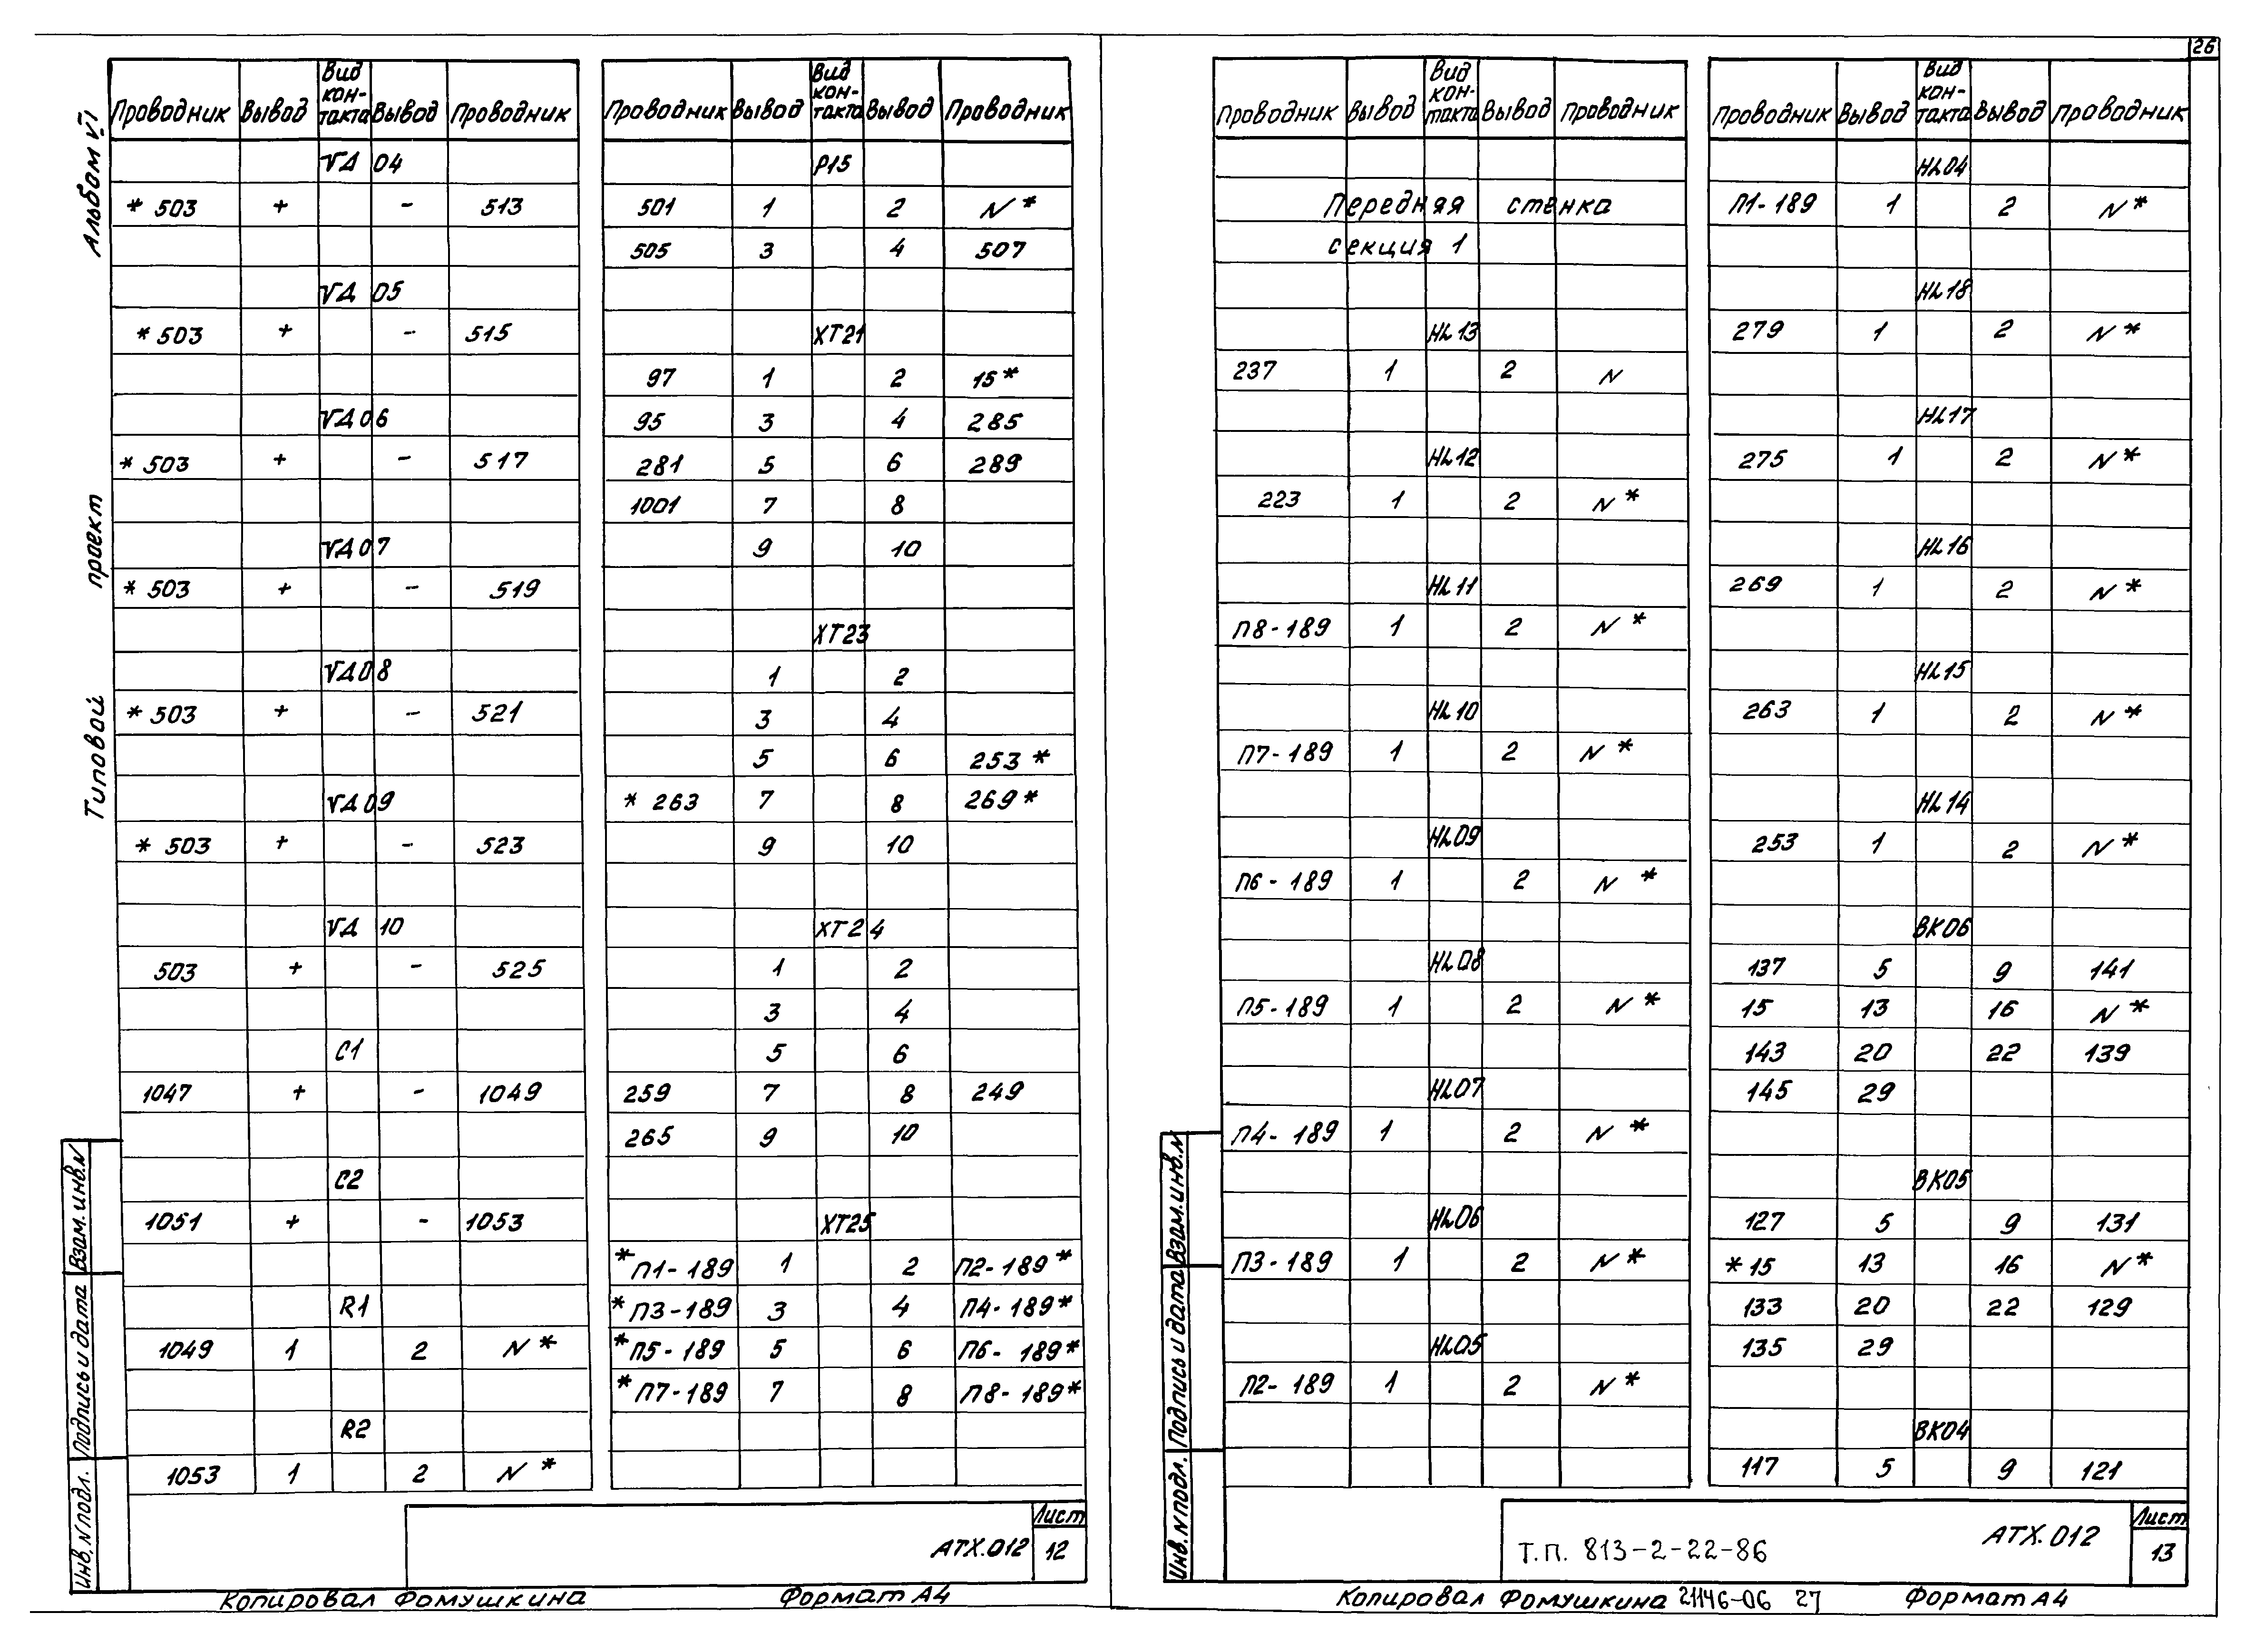 26
Альбом VI
проект
Типовой
Взам. инв. N
Подпись и дата
Инв. N подл.
Проводник Вывод Вид кон-такта Вывод Проводник
VД 04
* 503 + - 513
VД 05
* 503 + - 515
VД 06
* 503 + - 517
VД 07
* 503 + - 519
VД 08
* 503 + - 521
VД 09
* 503 + - 523
VД 10
503 + - 525
С1
1047 + - 1049
С2
1051 + - 1053
R1
1049 1 2 N *
R2
1053 1 2 N *
Проводник Вывод Вид кон-такта Вывод Проводник
Р15
501 1 2 N *
505 3 4 507
ХТ21
97 1 2 15 *
95 3 4 285
281 5 6 289
1001 7 8
9 10
ХТ23
1 2
3 4
5 6 253 *
* 263 7 8 269 *
9 10
ХТ24
1 2
3 4
5 6
259 7 8 249
265 9 10
ХТ25
* П1-189 1 2 П2-189 *
* П3-189 3 4 П4-189 *
* П5-189 5 6 П6-189 *
* П7-189 7 8 П8-189 *
АТХ.012
Лист
12
Копировал Фомушкина Формат А4
Взам. инв. N
Подпись и дата
Инв. N подл.
Проводник Вывод Вид кон-такта Вывод Проводник
Передняя стенка
секция 1
HL13
237 1 2 N
HL12
223 1 2 N *
HL11
П8-189 1 2 N *
HL10
П7-189 1 2 N *
HL09
П6-189 1 2 N *
HL08
П5-189 1 2 N *
HL07
П4-189 1 2 N *
HL06
П3-189 1 2 N *
HL05
П2-189 1 2 N *
Проводник Вывод Вид кон-такта Вывод Проводник
HL04
П1-189 1 2 N *
HL18
279 1 2 N *
HL17
275 1 2 N *
HL16
269 1 2 N *
HL15
263 1 2 N *
HL14
253 1 2 N *
ВК06
137 5 9 141
15 13 16 N *
143 20 22 139
145 29
ВК05
127 5 9 131
* 15 13 16 N *
133 20 22 129
135 29
ВК04
117 5 9 121
Т.П. 813-2-22-86 АТХ.012
Лист
13
Копировал Фомушкина 21146-06 27 Формат А4